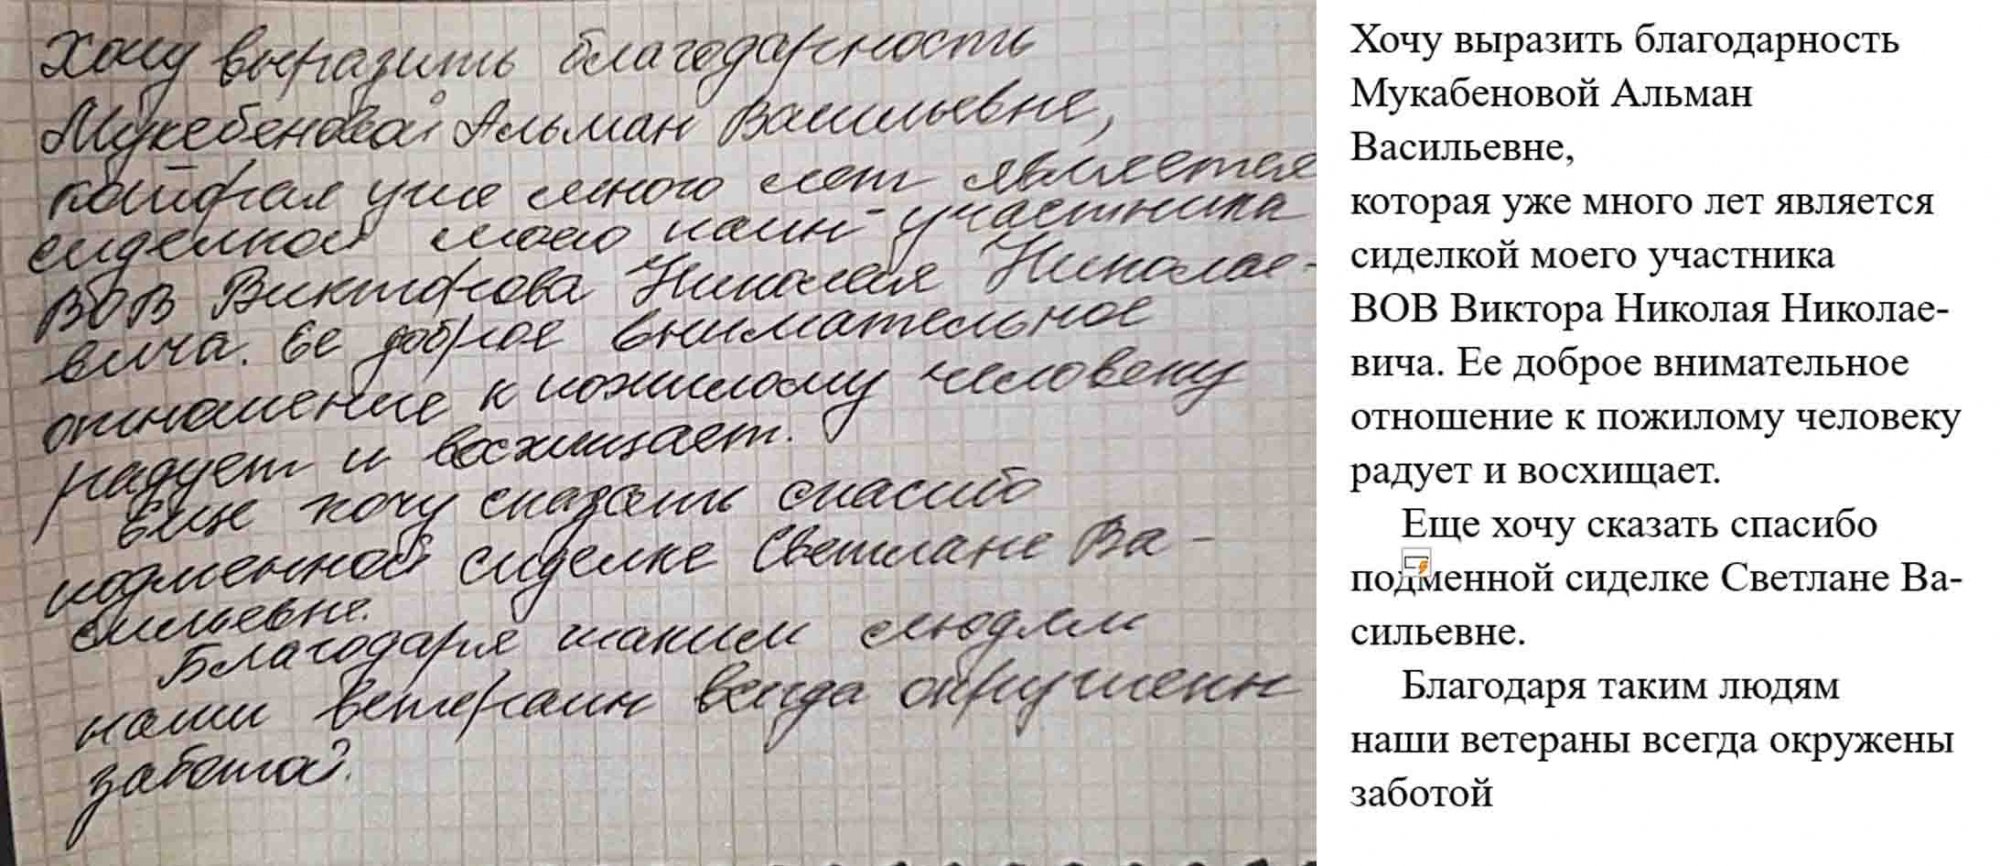 Хочу выразить благодарность
Мукебеновой Альман Васильевне,
которая уже много лет является
сиделкой моего папы - участника
ВОВ Викторова Николая Николае-
вича. Ее доброе внимательное
отношение к пожилому человеку
радует и восхищает.
Еще хочу сказать спасибо
подменной сиделке Светлане Ва-
сильевне.
Благодаря таким людям
наши ветераны всегда окружены
заботой.
Хочу выразить благодарность
Мукабеновой Альман
Васильевне,
которая уже много лет является
сиделкой моего участника
ВОВ Виктора Николая Николае-
вича. Ее доброе внимательное
отношение к пожилому человеку
радует и восхищает.
Еще хочу сказать спасибо
подменной сиделке Светлане Ва-
сильевне.
Благодаря таким людям
наши ветераны всегда окружены
заботой